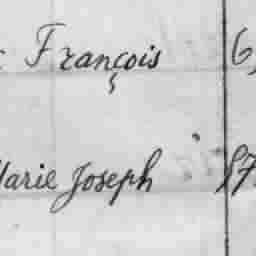 François 6
Marie Joseph 57